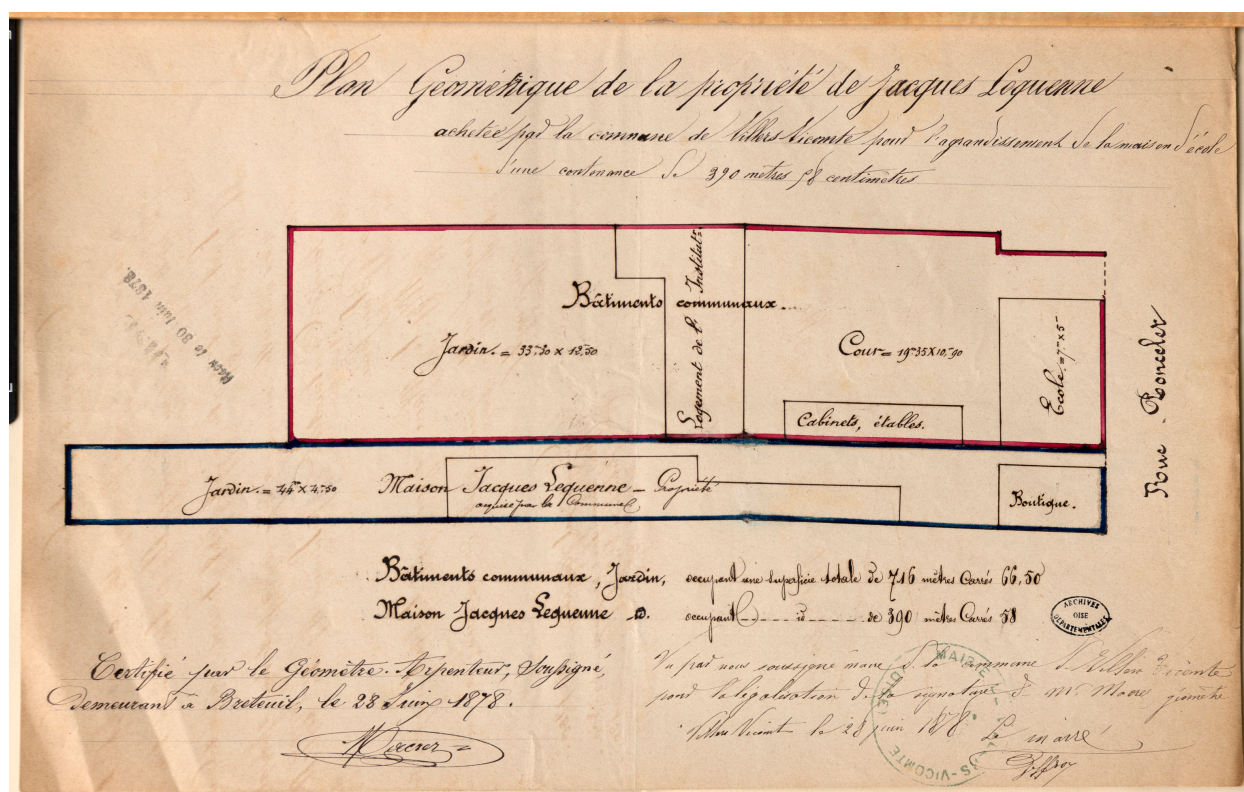 Plan Géométrique de la propriété de Jacques Lequenne
achetée par la commune de Villers-Vicomte pour l'agrandissement de la maison d'école
d'une contenance de 390 mètres 58 centimètres
Reçu le 30 Juin 1878.
Bâtiments communaux...
Jardin. = 33m30 x 13m50
Logement de l'Institutr
Cour = 19m35 x 10m90
École. = 7m x 5m
Cabinets, étables.
Rue
Jardin. = 44m x 4m50
Maison Jacques Lequenne - Propriété
acquise par la Commune
Boutique.
Bâtiments communaux, Jardin, occupant une superficie totale de 716 mètres Carrés 66,50
Maison Jacques Lequenne d. occupant - - - d - - - de 390 mètres Carrés 58
ARCHIVES
OISE
DÉPARTEMENTALES
Certifié par le Géomètre-Arpenteur, Soussigné,
Demeurant à Breteuil, le 28 Juin 1878.
Vu par nous soussigné maire de la commune de Villers Vicomte
pour la légalisation de la signature de Mr géomètre
Villers Vicomte le 28 juin 1878
Le maire
MAIRIE - VILLERS-VICOMTE - OISE